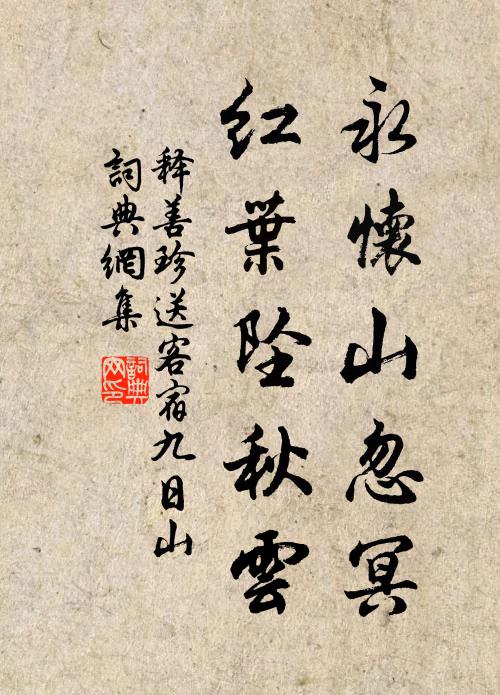 永懷山忽冥
紅葉墜秋雲
釋善珍送客宿九日山
詞典網集
詞典网印